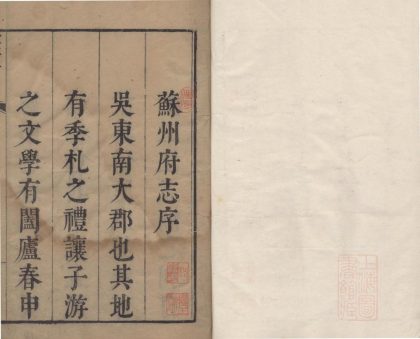 蘇州府志序
吳東南大郡也其地
有季札之禮讓子游
之文學有闔廬春申